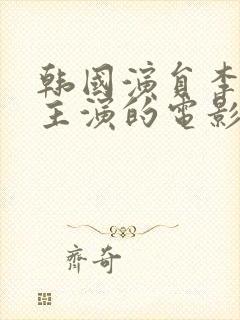 韩國演員李
主演的電影
齊奇